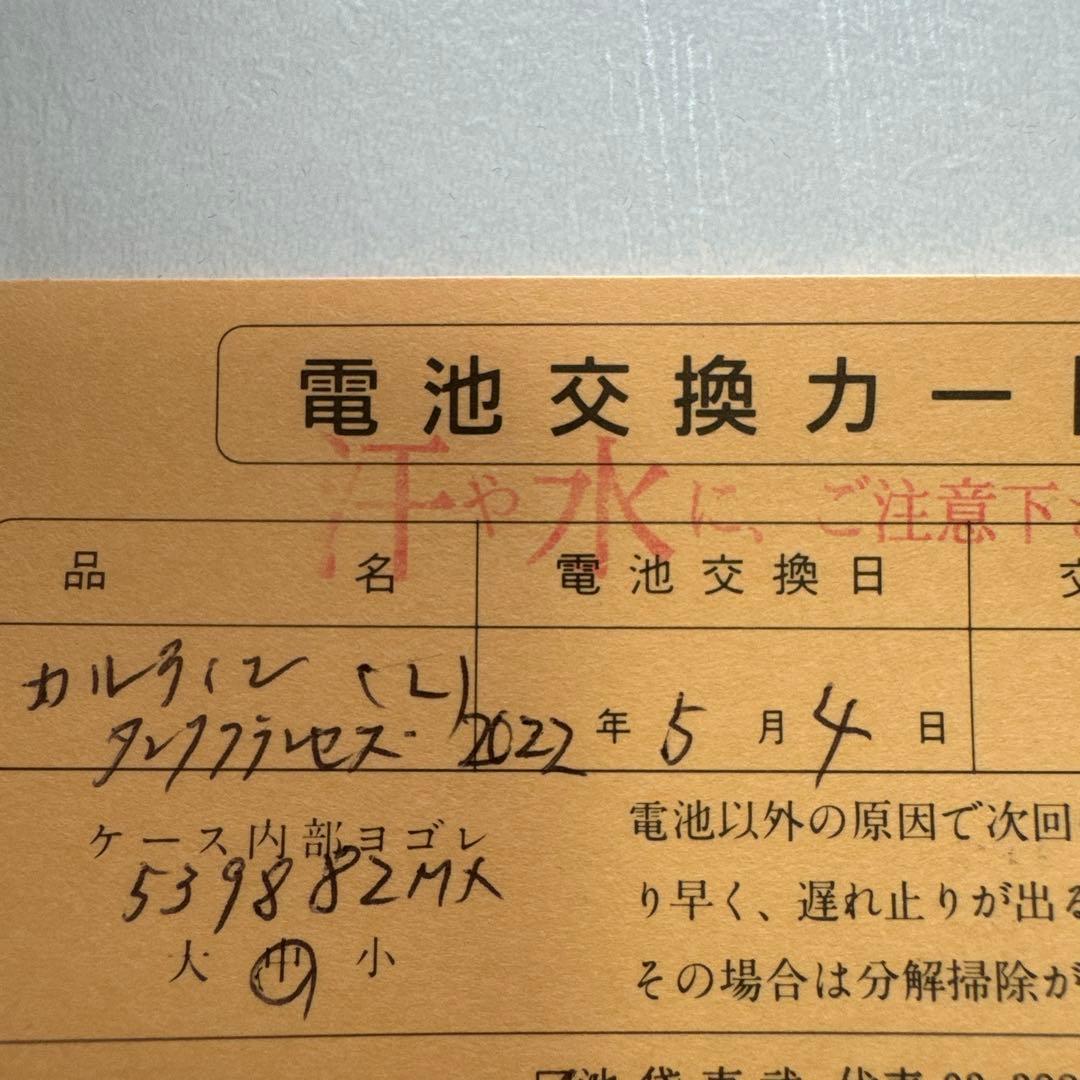 電池交換カード
汗や水に、ご注意下さ
品名 電池交換日 交
カルティエ (L)
タンクフランセーズ 2022年5月4日
ケース内部ヨゴレ
539882MX
大 中 小
電池以外の原因で次回
り早く、遅れ止りが出る
その場合は分解掃除が
池袋東武 代表03-